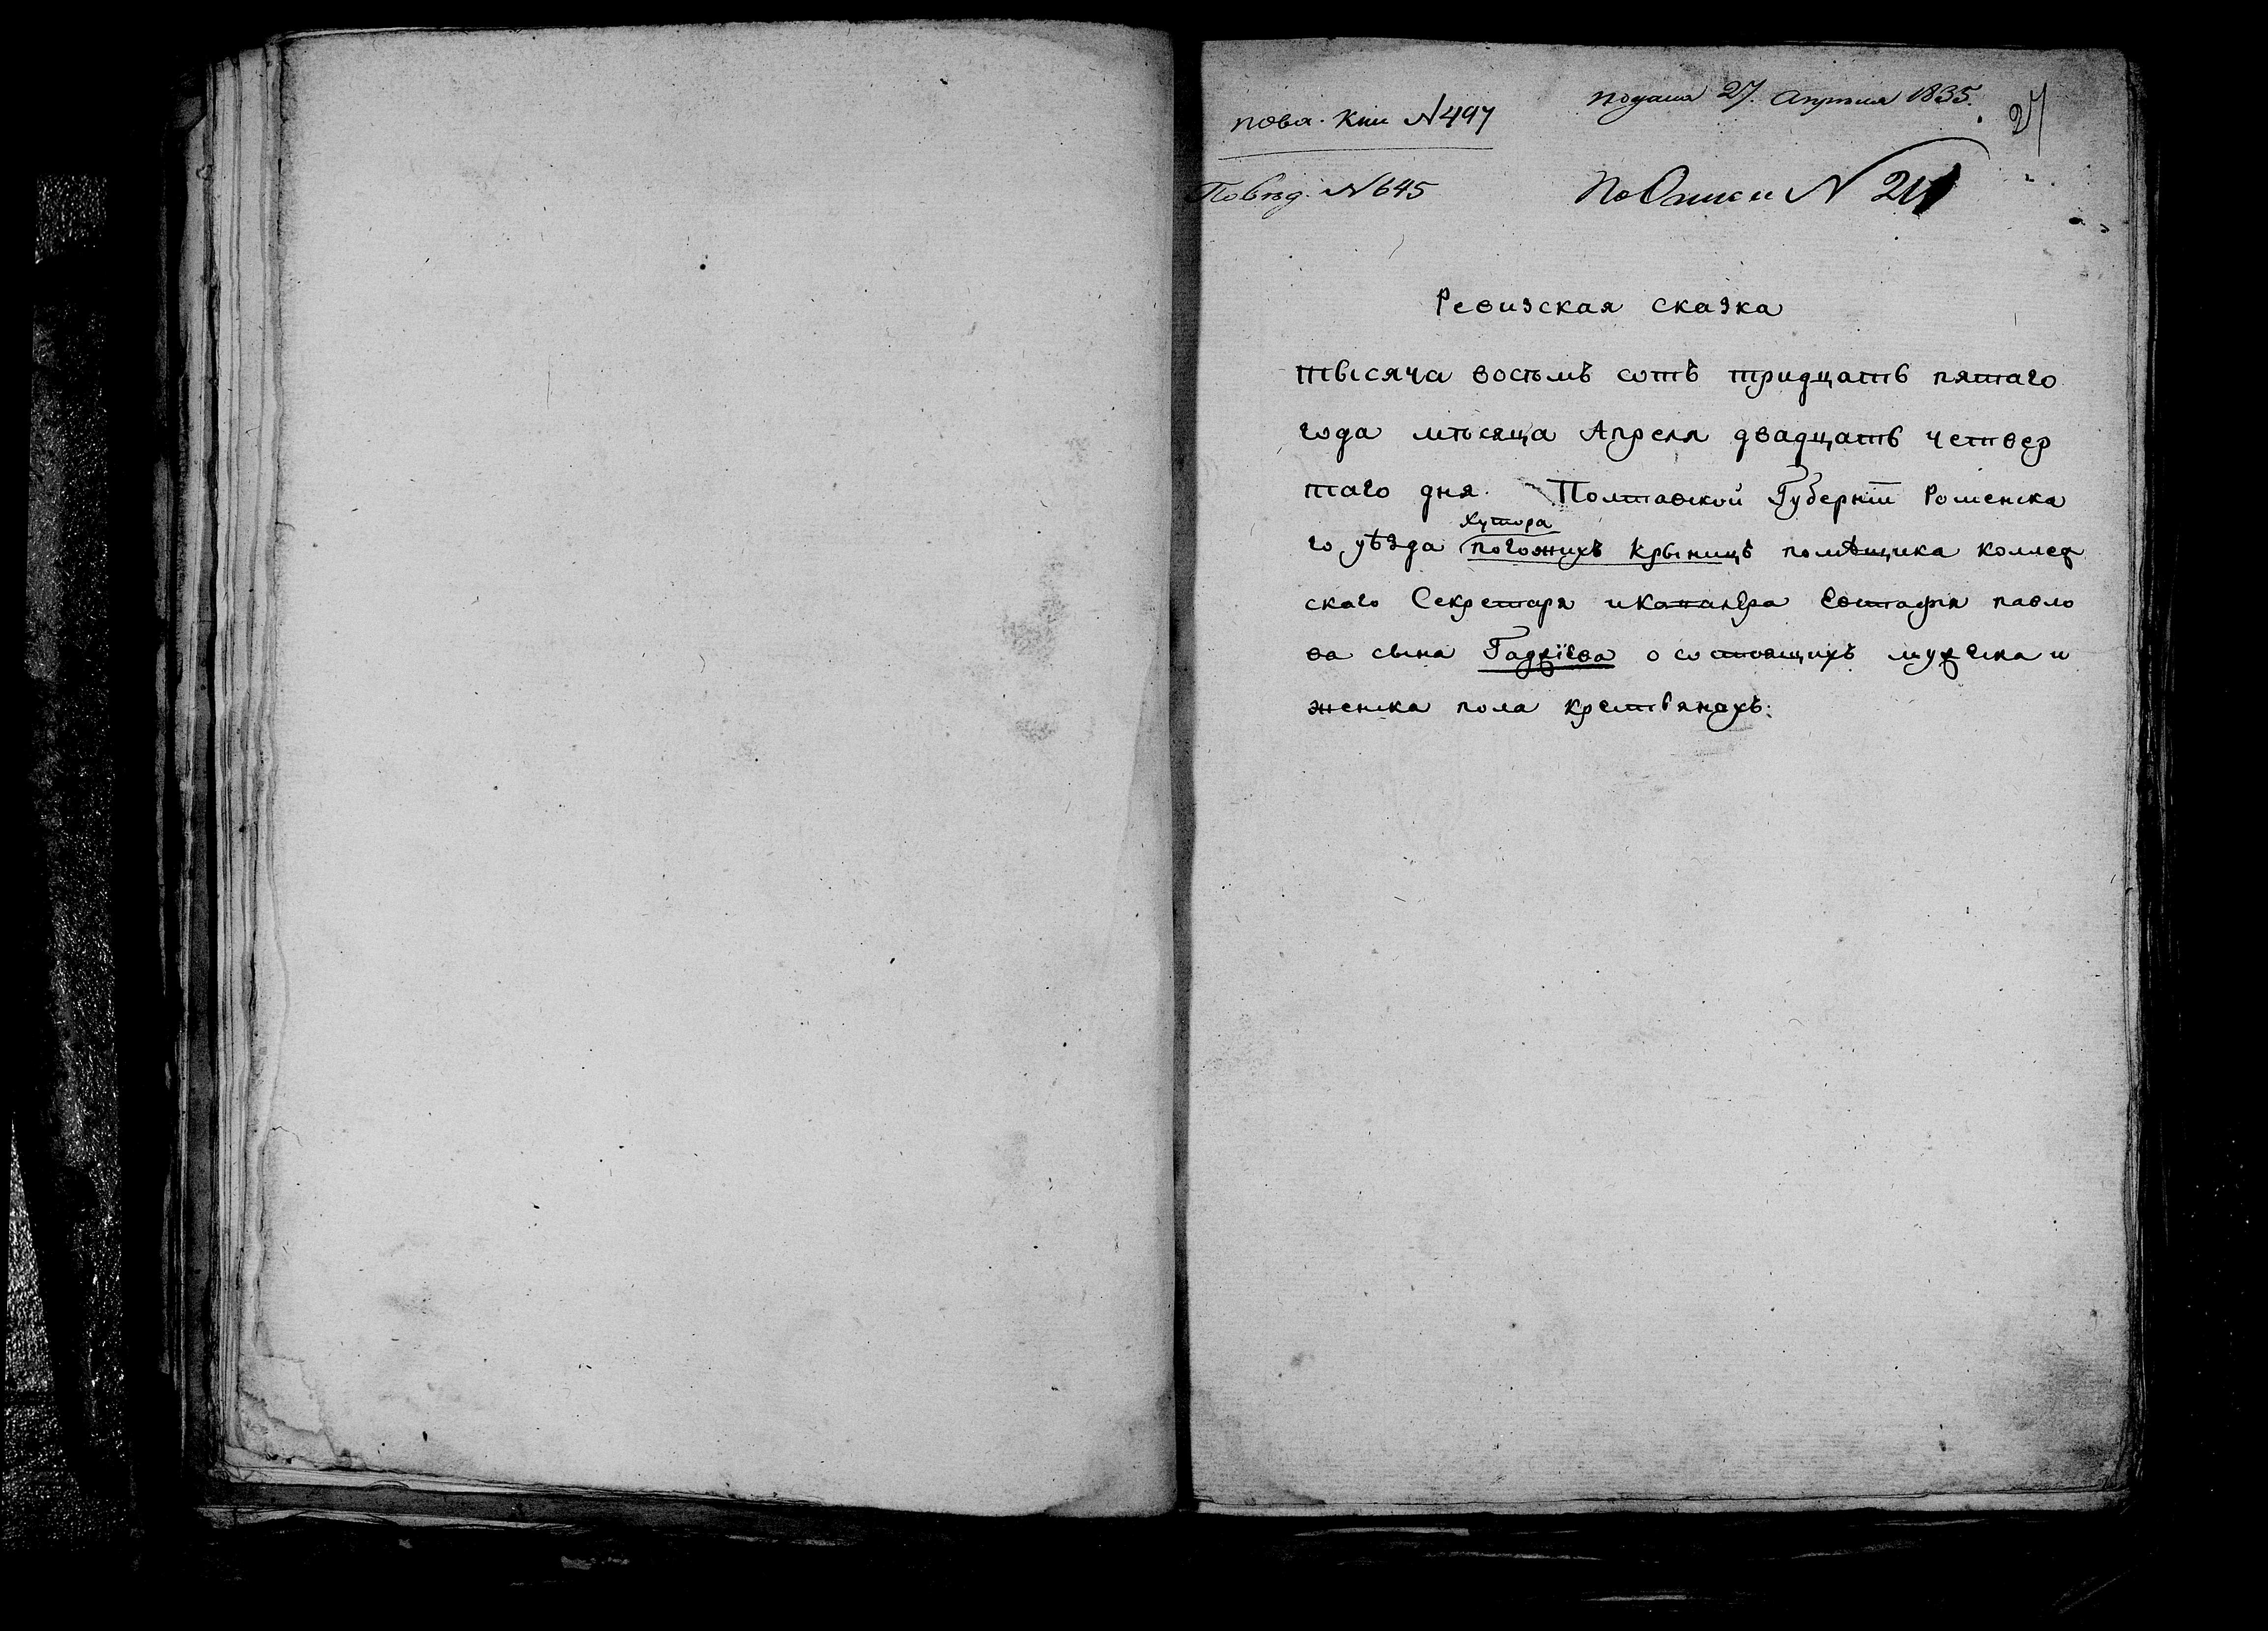 подана 27. Апрѣля 1835.
27
пова. кни №497
По вѣд. №645
По Описи №
Ревизская сказка
тысяча восъмъ сотъ тридцать пятаго
года мѣсяца Апреля двадцать четвер
таго дня. Полтавской Губернїи Роменска
Хутора
го уѣзда погожихъ крыницъ помѣщика коллеж
скаго Секретаря и Евстафїя павло
ва сына о состоящихъ мужеска и
женска пола крестьянахъ: